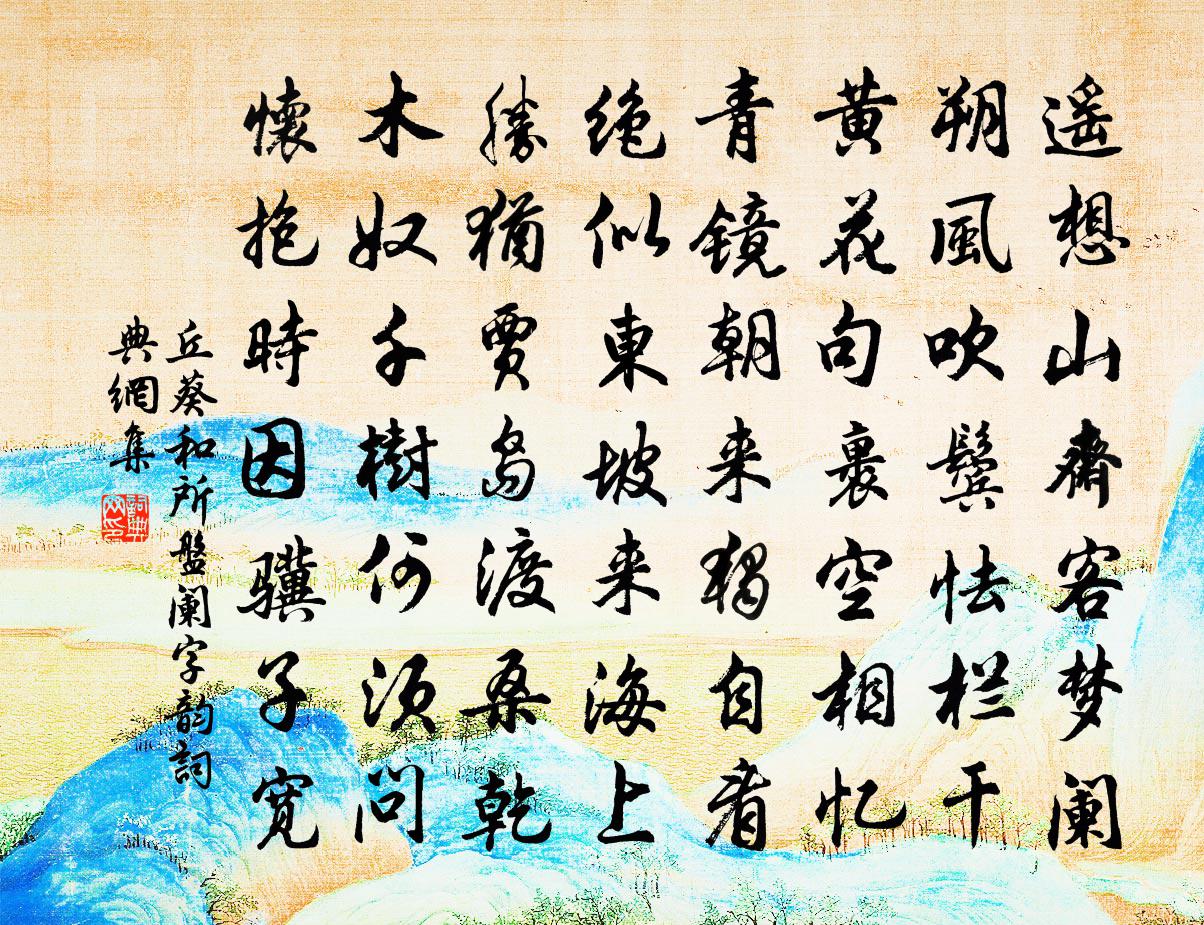 遥想山齋客梦阑
朔風吹鬓怯栏干
黄花句裏空相忆
青镜朝来独自看
绝似東坡来海上
勝猶贾岛渡桑乾
木奴千樹何须问
懷抱時因骥子宽
丘葵和所盤阑字韵詞
典網集